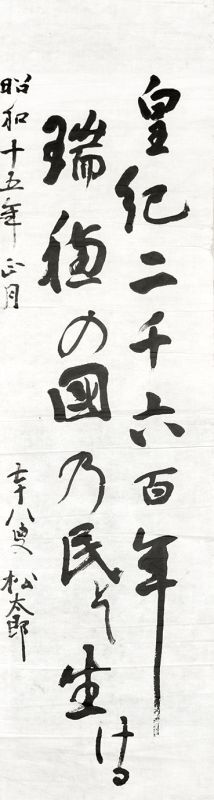 皇紀二千六百年
瑞穂の國乃民と生ける
昭和十五年正月
七十八叟 松太郎